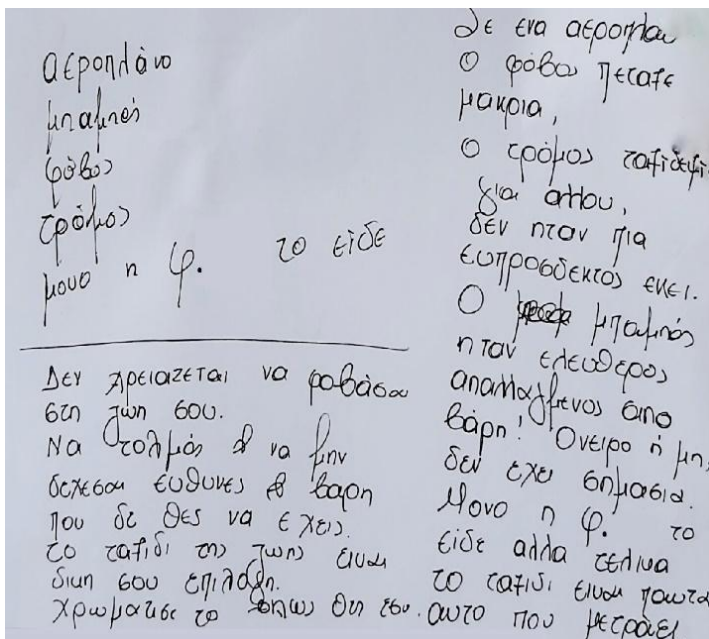 αεροπλάνο
μπαμπάς
φόβος
τρόμος
μονο η φ. το είδε
Δεν χρειαζεται να φοβάσαι
στη ζωη σου.
Να τολμάς & να μην
δεχεσαι ευθυνες & βαρη
που δε θες να εχεις.
το ταξιδι της ζωης ειναι
δικη σου επιλογη.
χρωματισε το οπως θες εσυ.
Σε ενα αεροπλανο
Ο φόβος πεταξε
μακρια,
Ο τρόμος ταξιδεψε
για αλλου,
δεν ηταν πια
ευπροσδεκτος εκει.
Ο μπαμπάς
ηταν ελευθερος
απαλλαγμενος απο
βάρη! Ονειρο ή μη,
δεν εχει σημασια.
Μονο η φ. το
είδε αλλα τελικα
το ταξιδι ειναι παντα
αυτο που μετράει